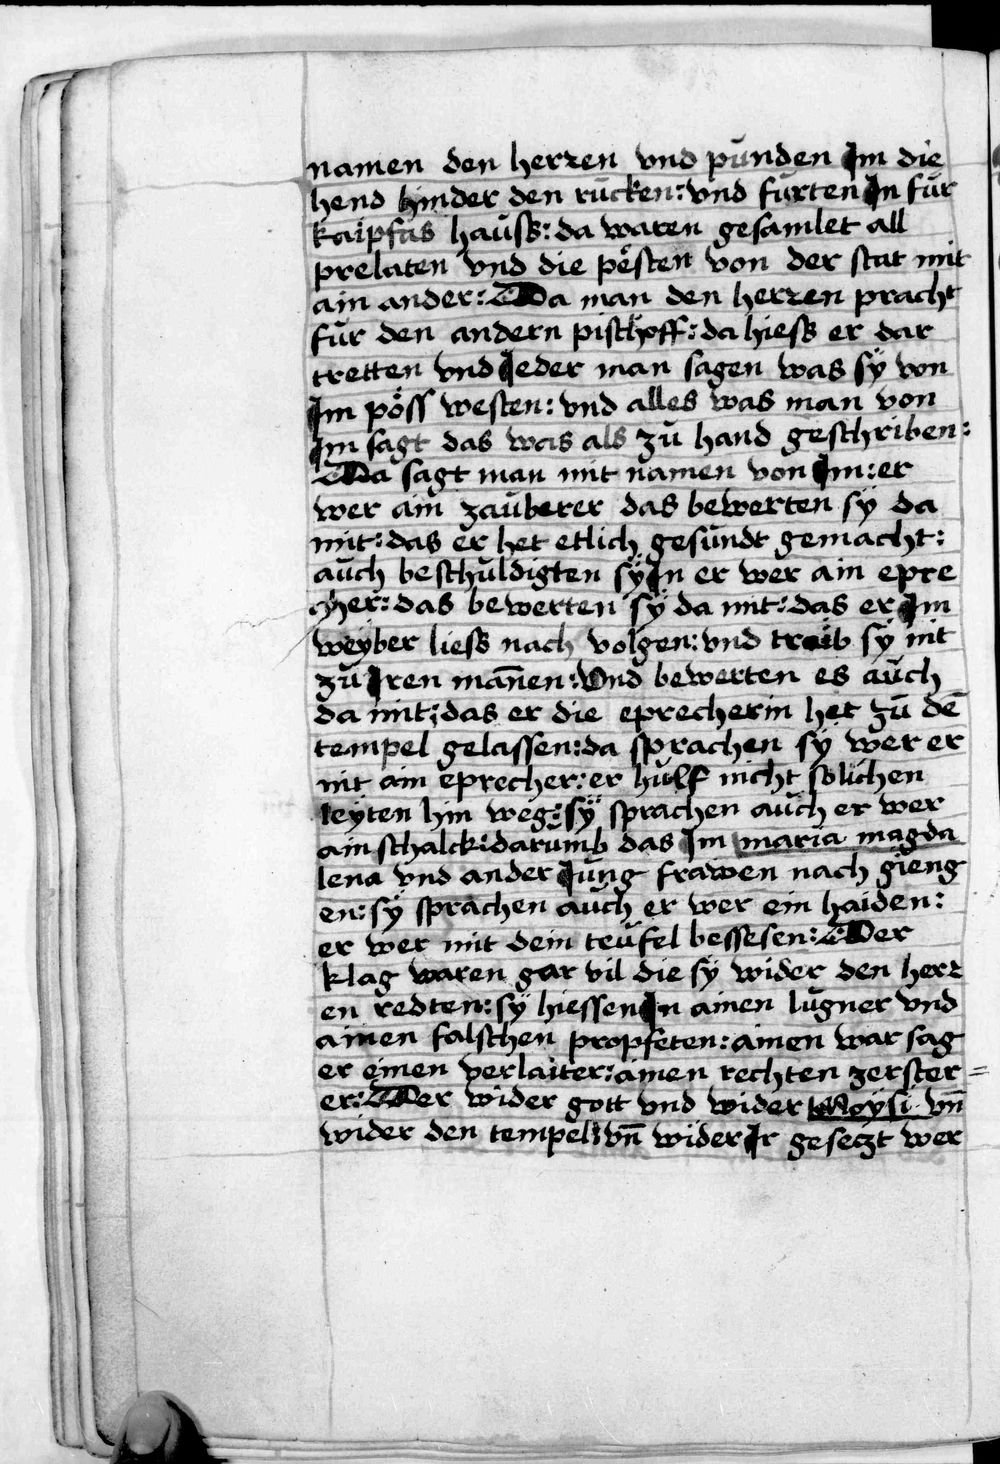 namen den herren vnd punden Im die
hend hinder den rucken: vnd furten In fur
kaipfas hauss: da waren gesamlet all
prelaten vnd die pösten von der stat mit
ain ander: Da man den herren pracht
fur den andern pischoff: da hiess er dar
tretten vnd Jeder man sagen was sÿ von
Im pöss westen: vnd alles was man von
Im sagt das was als zu hand geschriben:
Da sagt man mit namen von Im: er
wer ain zauberer das bewerten sÿ da
mit: das er het etlich gesundt gemacht:
auch beschuldigten sÿ In er wer ain epre
cher: das bewerten sÿ da mit: das er Im
weÿber liess nach volgen: vnd traib sÿ nit
zu Iren man̄en: Vnd bewerten es auch
da mit: das er die eprecherin het zu dē
tempel gelassen: da sprachen sÿ wer er
nit ain eprecher: er hulf nicht solichen
leÿten hin weg: sÿ sprachen auch er wer
ain schalck: darumb das Im maria magda
lena vnd ander Jung frawen nach gieng
en: sÿ sprachen auch er wer ein haiden:
er wer mit dem teufel bessesen: Der
klag waren gar vil die sÿ wider den herr
en redten: sÿ hiessen In ainen lugner vnd
ainen falschen propfeten: ainen war sag
er einen verlaiter: ainen rechten zerster=
er: Der wider gott vnd wider Moÿsi vn̄
wider den tempel: vn̄ wider Ir gesetzt wer